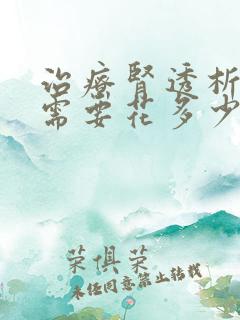 治療腎透析
需要花多少
荣俱荣
未经同意禁止转载